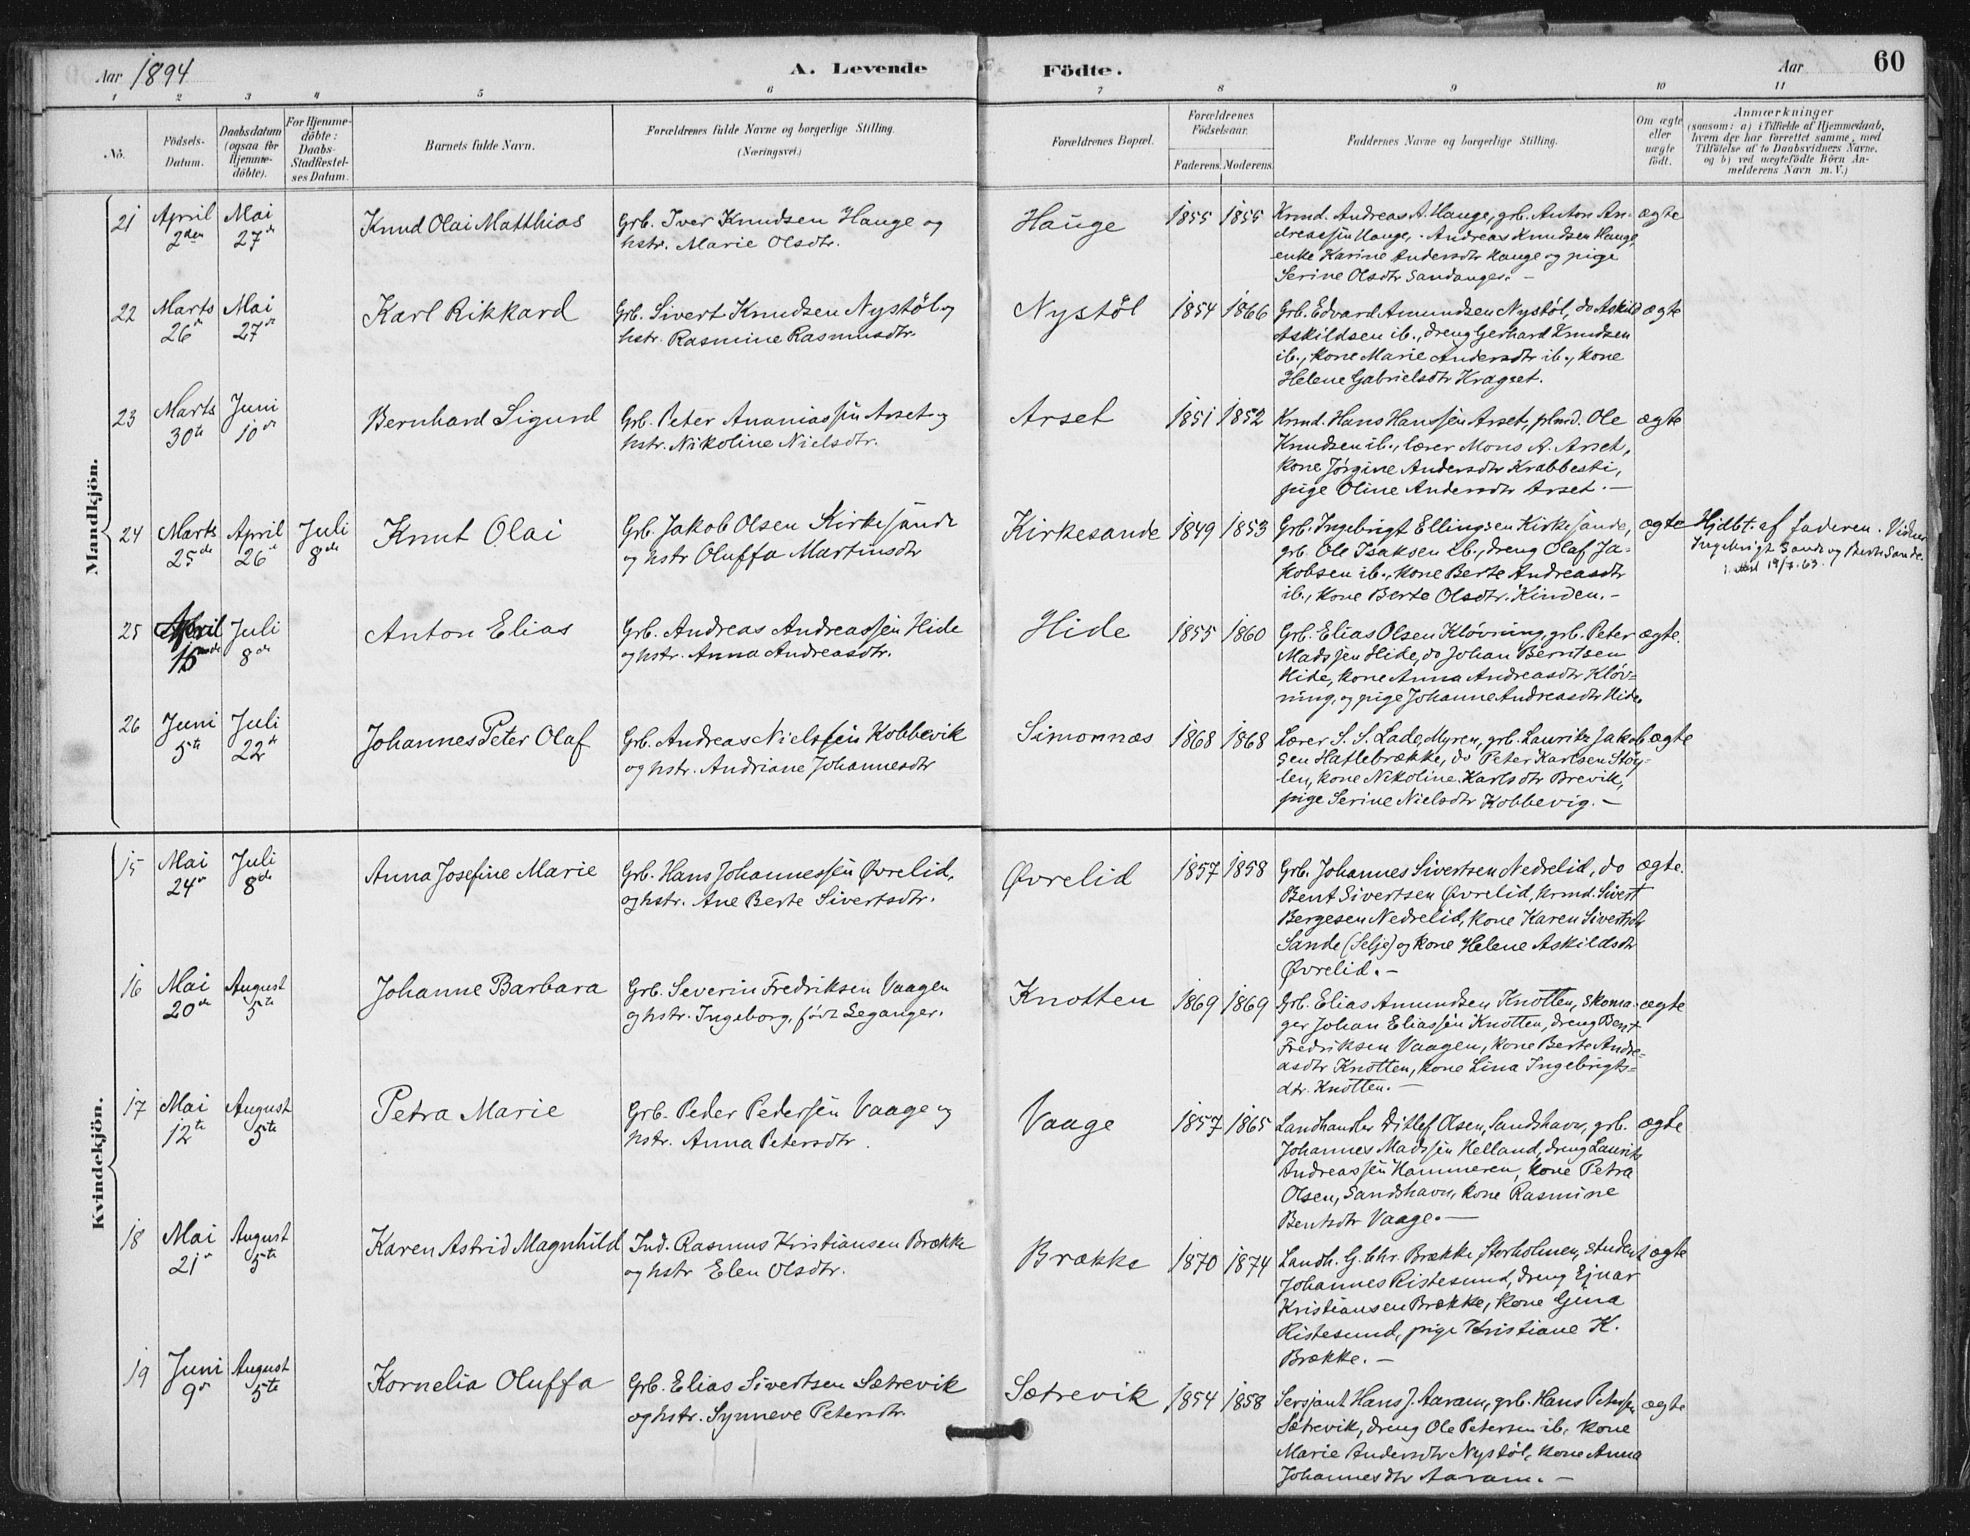 Aar 1894 A. Levende Födte. Aar 60
1 2 3 4 5 6 7 8 9 10 11
No.
Födsels-
Datum.
Daabsdatum
(ogsaa for
Hjemme-
döbte).
For Hjemme-
döbte:
Daabs-
Stadfæstel-
ses Datum.
Barnets fulde Navn.
Forældrenes fulde Navne og borgerlige Stilling.
(Næringsvei.)
Forældrenes Bopæl.
Forældrenes
Födselsaar.
Faderens. Moderens.
Faddernes Navne og borgerlige Stilling.
Om ægte
eller
uægte
födt.
Anmærkninger
(saasom: a) i Tilfælde af Hjemmedaab,
hvem der har forrettet samme, med
Tilföielse af to Daabsvidners Navne.
og b) ved uægtefödte Börn An-
melderens Navn m. V.)
Mandkjön.
21 April 2den Mai 27de Knud Olai Matthias
Grb. Iver Knudsen Hauge og
hstr. Marie Olsdtr.
Hauge 1855 1855
Krmd. Andreas A. Hauge, grb. Anton An-
dreassen Hauge, Andreas Knudsen Hauge,
enke Karine Andersdtr Hauge og pige
Serine Olsdtr Sandanger. —
ægte
22 Marts 26de Mai 27de Karl Rikkard
Grb. Sivert Knudsen Nystøl og
hstr. Rasmine Rasmusdtr.
Nystøl 1854 1866
Grb. Edvard Amundsen Nystøl, do Askild
Askildsen ib., dreng Gerhard Knudsen
ib., kone Marie Andersdtr ib., kone
Helene Gabrielsdtr Kragset.
ægte
23 Marts 30te Juni 10de Bernhard Sigurd
Grb. Peter Ananiassen Arset og
hstr. Nikoline Nielsdtr.
Arset 1851 1852
Krmd. Hans Hanssen Arset, plmd. Ole
Knudsen ib., lærer Mons A. Arset,
kone Jørgine Andersdtr Krabbesti,
pige Oline Andersdtr Arset. —
ægte
24 Marts 25de April 26de Juli 8de Knut Olai
Grb. Jakob Olsen Kirkesande
og hstr Oluffa Martinsdtr
Kirkesande 1849 1853
Grb. Ingebrigt Ellingsen Kirkesande,
grb. Ole Isaksen ib., dreng Olaf Ja-
kobsen ib., kone Berte Andreasdtr
ib., kone Berte Olsdtr. Kinden. —
ægte
Hjdbt. af faderen. Vidner
Ingebrigt Sande og Berte Sande.
19/7.63.
25 April 15de Juli 8de Anton Elias
Grb. Andreas Andreassen Hide
og hstr. Anna Andreasdtr.
Hide 1855 1860
Grb. Elias Olsen Kløvning, grb. Peter
Madssen Hide, do Johan Berntsen
Hide, kone Anna Andreasdtr Kløv-
ning, og pige Johanne Andreasdtr Hide.
ægte.
26 Juni 5te Juli 22de Johannes Peter Olaf
Grb. Andreas Nielssen Kobbevik
og hstr. Andriane Johannesdtr
Simonnæs 1868 1868
Lærer S. S. Lade, Myren, grb. Lauritz Jakob-
sen Hatlebrække, do Peter Karlsen Støy-
len, kone Nikoline Karlsdtr Brevik,
pige Serine Nielsdtr Kobbevig. —
ægte
Kvindekjön.
15 Mai 24de Juli 8de Anna Josefine Marie
Grb. Hans Johannessen Øvrelid,
og hstr. Ane Berte Sivertsdtr.
Øvrelid 1857 1858
Grb. Johannes Sivertsen Nedrelid, do
Bent Sivertsen Øvrelid, krmd. Sivert
Bergesen Nedrelid, kone Karen Sivertsdtr
Sande (Selje) og kone Helene Askildsdtr
Øvrelid. —
ægte.
16 Mai 20de August 5te Johanne Barbara
Grb. Severin Fredriksen Vaagen
og hstr. Ingeborg, født Leganger.
Knotten 1869 1869
Grb. Elias Amundsen Knotten, skoma-
ger Johan Eliassen Knotten, dreng Bent
Fredriksen Vaagen, kone Berte Andre-
asdtr Knotten, kone Lina Ingebrigts-
dtr. Knotten. —
ægte
17 Mai 12te August 5te Petra Marie
Grb. Peder Pedersen Vaage og
hstr. Anna Petersdtr.
Vaage 1857 1865
Landhandler Ditlef Olsen, Sandshavn, grb.
Johannes Madssen Helland, dreng Lauritz
Andreassen Hammeren, kone Petra
Olsen, Sandshavn, kone Rasmine
Bentsdtr Vaage. —
ægte
18 Mai 21de August 5te Karen Astrid Magnhild
Ind. Rasmus Kristiansen Brække
og hstr Elen Olsdtr.
Brække 1870 1874
Landh. G. Chr. Brække, Storholmen, student
Johannes Ristesund, dreng Ejnar
Kristiansen Brække, kone Gina
Ristesund, pige Kristiane K.
Brække. —
ægte
19 Juni 9de August 5te Kornelia Oluffa
Grb. Elias Sivertsen Sætrevik
og hstr. Synneve Petersdtr.
Sætrevik 1854 1858
Sersjant Hans J. Aaram, grb. Hans Peterssen
Sætrevik, dreng Ole Petersen ib. kone
Marie Andersdtr Nystøl, kone Anna
Johannesdtr Aaram. —
ægte